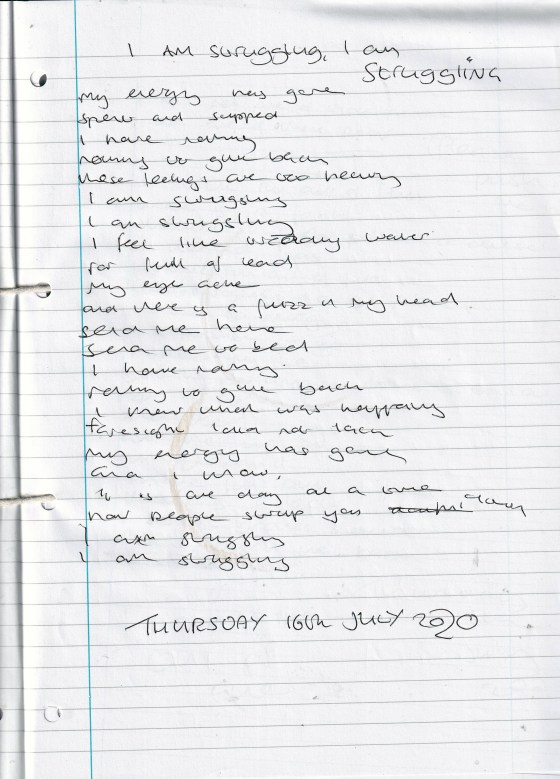 I AM struggling, I am
Struggling
my energy has gone
spent and sapped
I have nothing
nothing to give back
these feelings are too heavy
I am struggling
I am struggling
I feel like wading water
for full of lead
my eye ache
and there is a fuzz in my head
send me home
send me to bed
I have nothing
nothing to give back
I knew what was happening
foresight I did not lack
my energy has gone
and I know,
it is one day at a time
how people
I am struggling
I am struggling
THURSDAY 16th JULY 2020